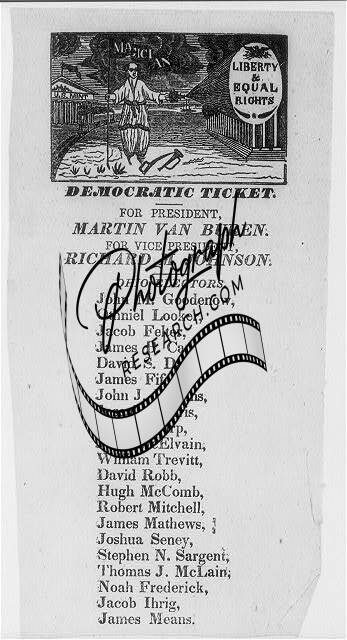 MAGICIANS
U.S. MINT
LIBERTY
&
EQUAL
RIGHTS
DEMOCRATIC TICKET.
FOR PRESIDENT,
MARTIN VAN BUREN.
FOR VICE PRESIDENT,
RICHARD M. JOHNSON.
OHIO ELECTORS.
John M. Goodenow,
Daniel
Jacob
James
David S.
James
John J.
Elvain,
William Trevitt,
David Robb,
Hugh McComb,
Robert Mitchell,
James Mathews,
Joshua Seney,
Stephen N. Sargent,
Thomas J. McLain,
Noah Frederick,
Jacob Ihrig,
James Means.
Photograph
RESEARCH.COM